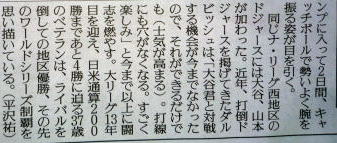 ンプに入って2日間、キャ
ッチボールで勢いよく腕を
振る姿が目を引く。
同じナ・リーグ西地区の
ドジャースには大谷、山本
が加わった。近年、打倒ド
ジャースを掲げてきたダル
ビッシュは「大谷君と対戦
する機会が今までなかった
ので、それができるだけで
も(士気が高まる)。打線
にも穴がなくなる。すごく
楽しみ」と今まで以上に闘
志を燃やす。大リーグ13年
目を迎え、日米通算200
勝まであと4勝に迫る37歳
のベテランは、ライバルを
倒しての地区優勝、その先
のワールドシリーズ制覇を
思い描いている。(平沢祐)